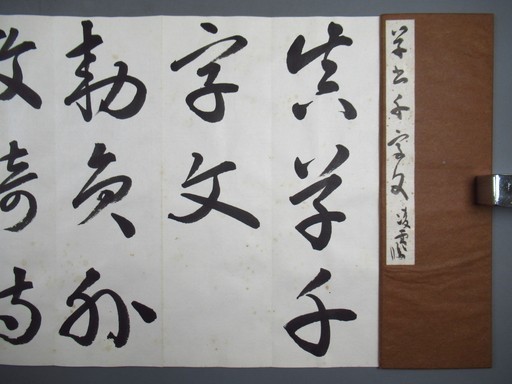 草書千字文
真草千
字文
勅員外